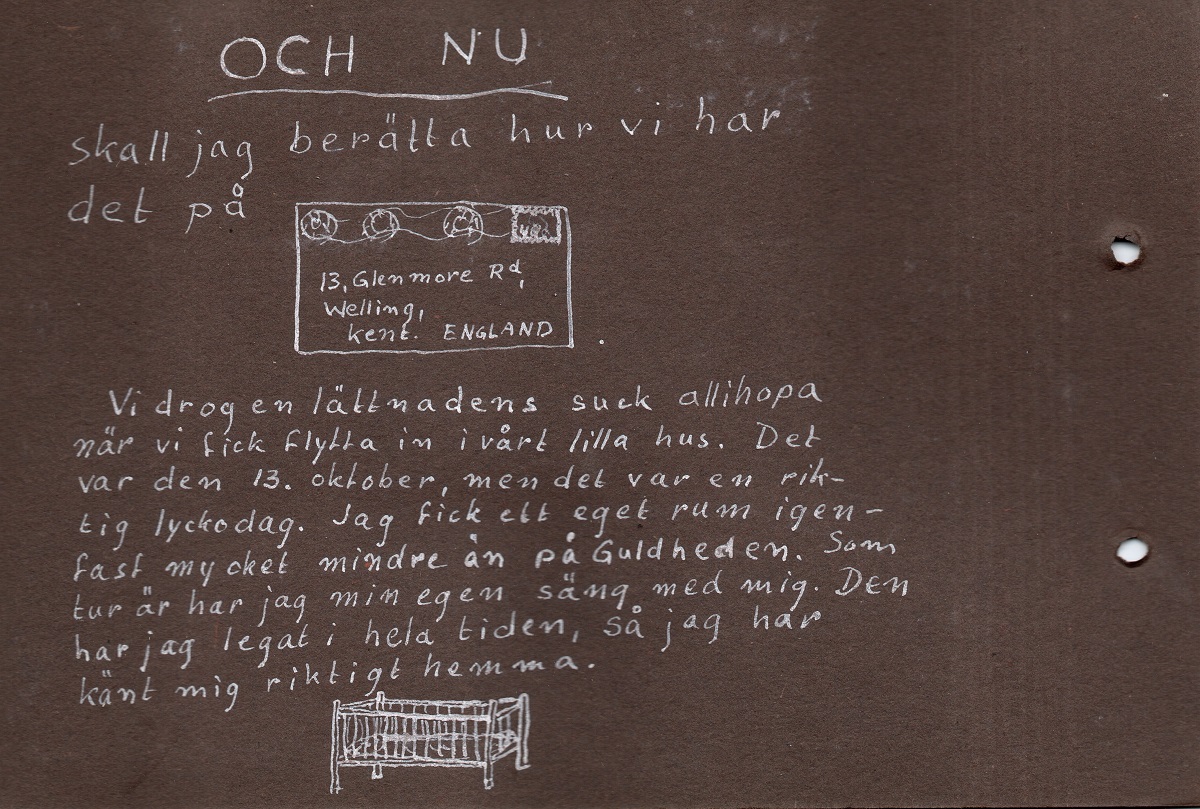 OCH NU
skall jag berätta hur vi har
det på
13, Glenmore Rd,
Welling,
Kent. ENGLAND
.
Vi drog en lättnadens suck allihopa
när vi fick flytta in i vårt lilla hus. Det
var den 13. oktober, men det var en rik-
tig lyckodag. Jag fick ett eget rum igen-
fast mycket mindre än på Guldheden. Som
tur är har jag min egen säng med mig. Den
har jag legat i hela tiden, så jag har
känt mig riktigt hemma.